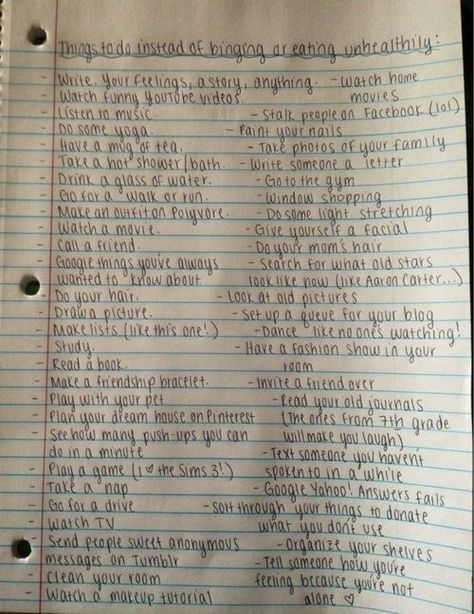 Things to do instead of binging or eating unhealthily:
- Write. Your feelings, a story, anything. - Watch home
- Watch funny YouTube videos. movies
- Listen to music. - Stalk people on Facebook (lol)
- Do some yoga. - Paint your nails
- Have a mug of tea. - Take photos of your family
- Take a hot shower/bath. - Write someone a letter
- Drink a glass of water. - Go to the gym
- Go for a walk or run. - Window shopping
- Make an outfit on Polyvore. - Do some light stretching
- Watch a movie. - Give yourself a facial
- Call a friend. - Do your mom's hair
- Google things you've always - Search for what old stars
wanted to know about look like now (like Aaron Carter...)
- Do your hair. - Look at old pictures
- Draw a picture. - Set up a queue for your blog
- Make lists (like this one!) - Dance like no one's watching!
- Study. - Have a fashion show in your
- Read a book. room
- Make a friendship bracelet. - Invite a friend over
- Play with your pet - Read your old journals
- Plan your dream house on Pinterest (The ones from 7th grade
- See how many push-ups you can will make you laugh)
do in a minute - Text someone you haven't
- Play a game (I ♡ the Sims 3!) spoken to in a while
- Take a nap - Google Yahoo! Answers fails
- Go for a drive - Sort through your things to donate
- Watch TV what you don't use
- Send people sweet anonymous - Organize your shelves
messages on Tumblr - Tell someone how you're
- Clean your room feeling because you're not
- Watch a makeup tutorial alone ♡